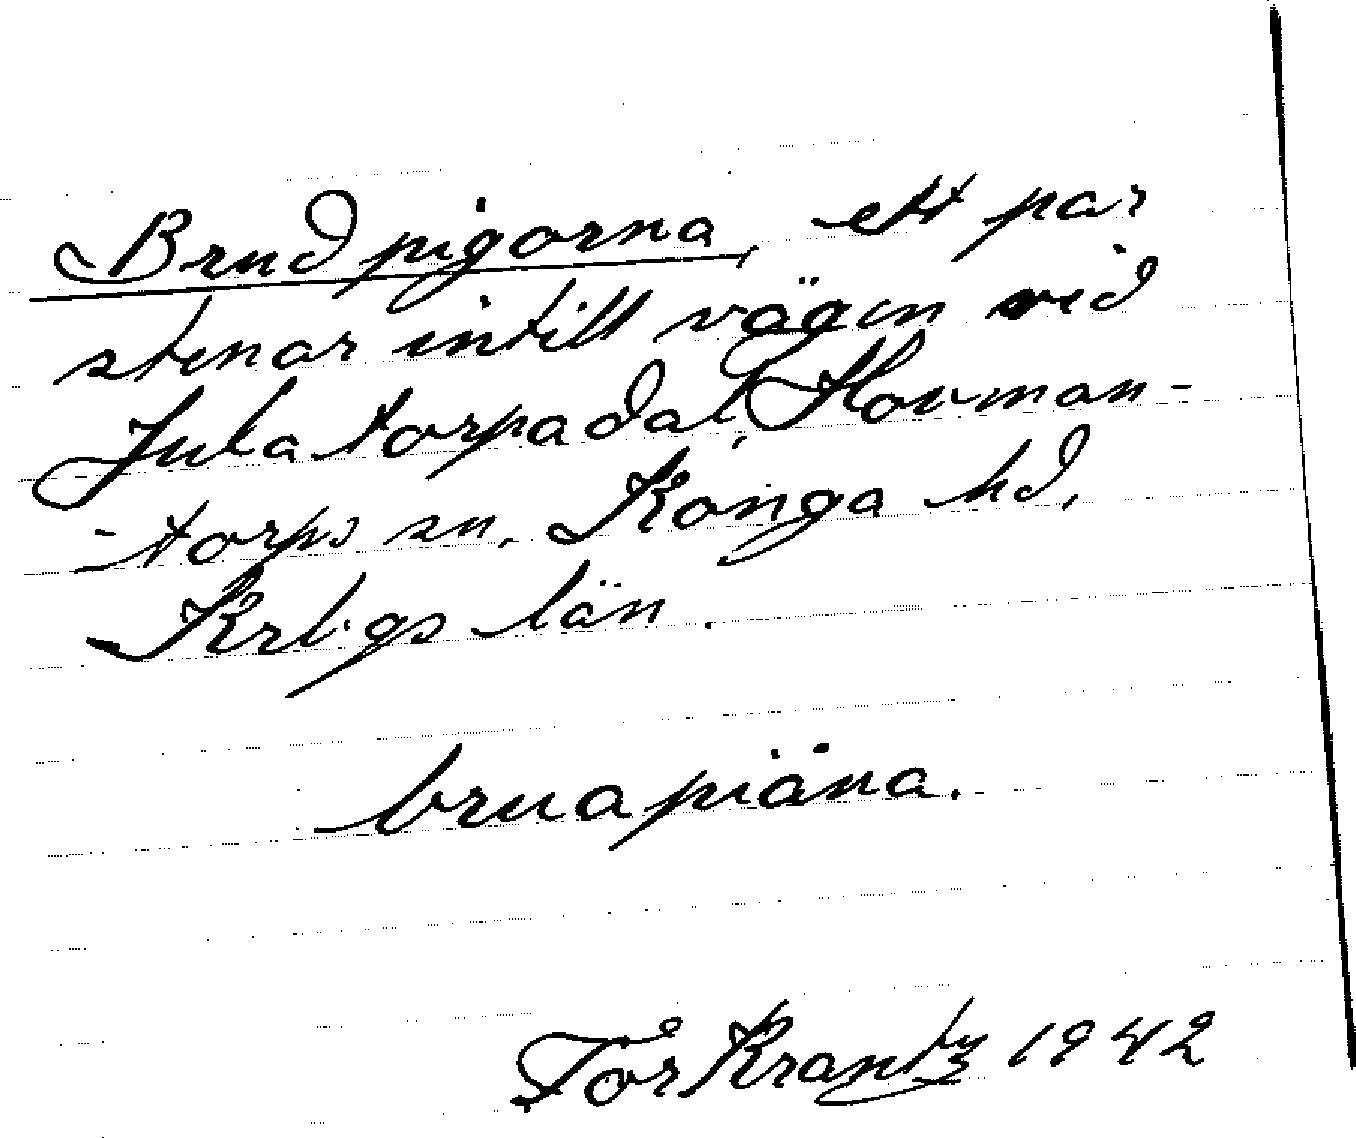 Brudpigorna, ett par
stenar intill vägen vid
Julatorpadal, Hovman-
-torps sn. Konga hd,
Krbgs län.
bruapiäna.
Tor Krantz 1942